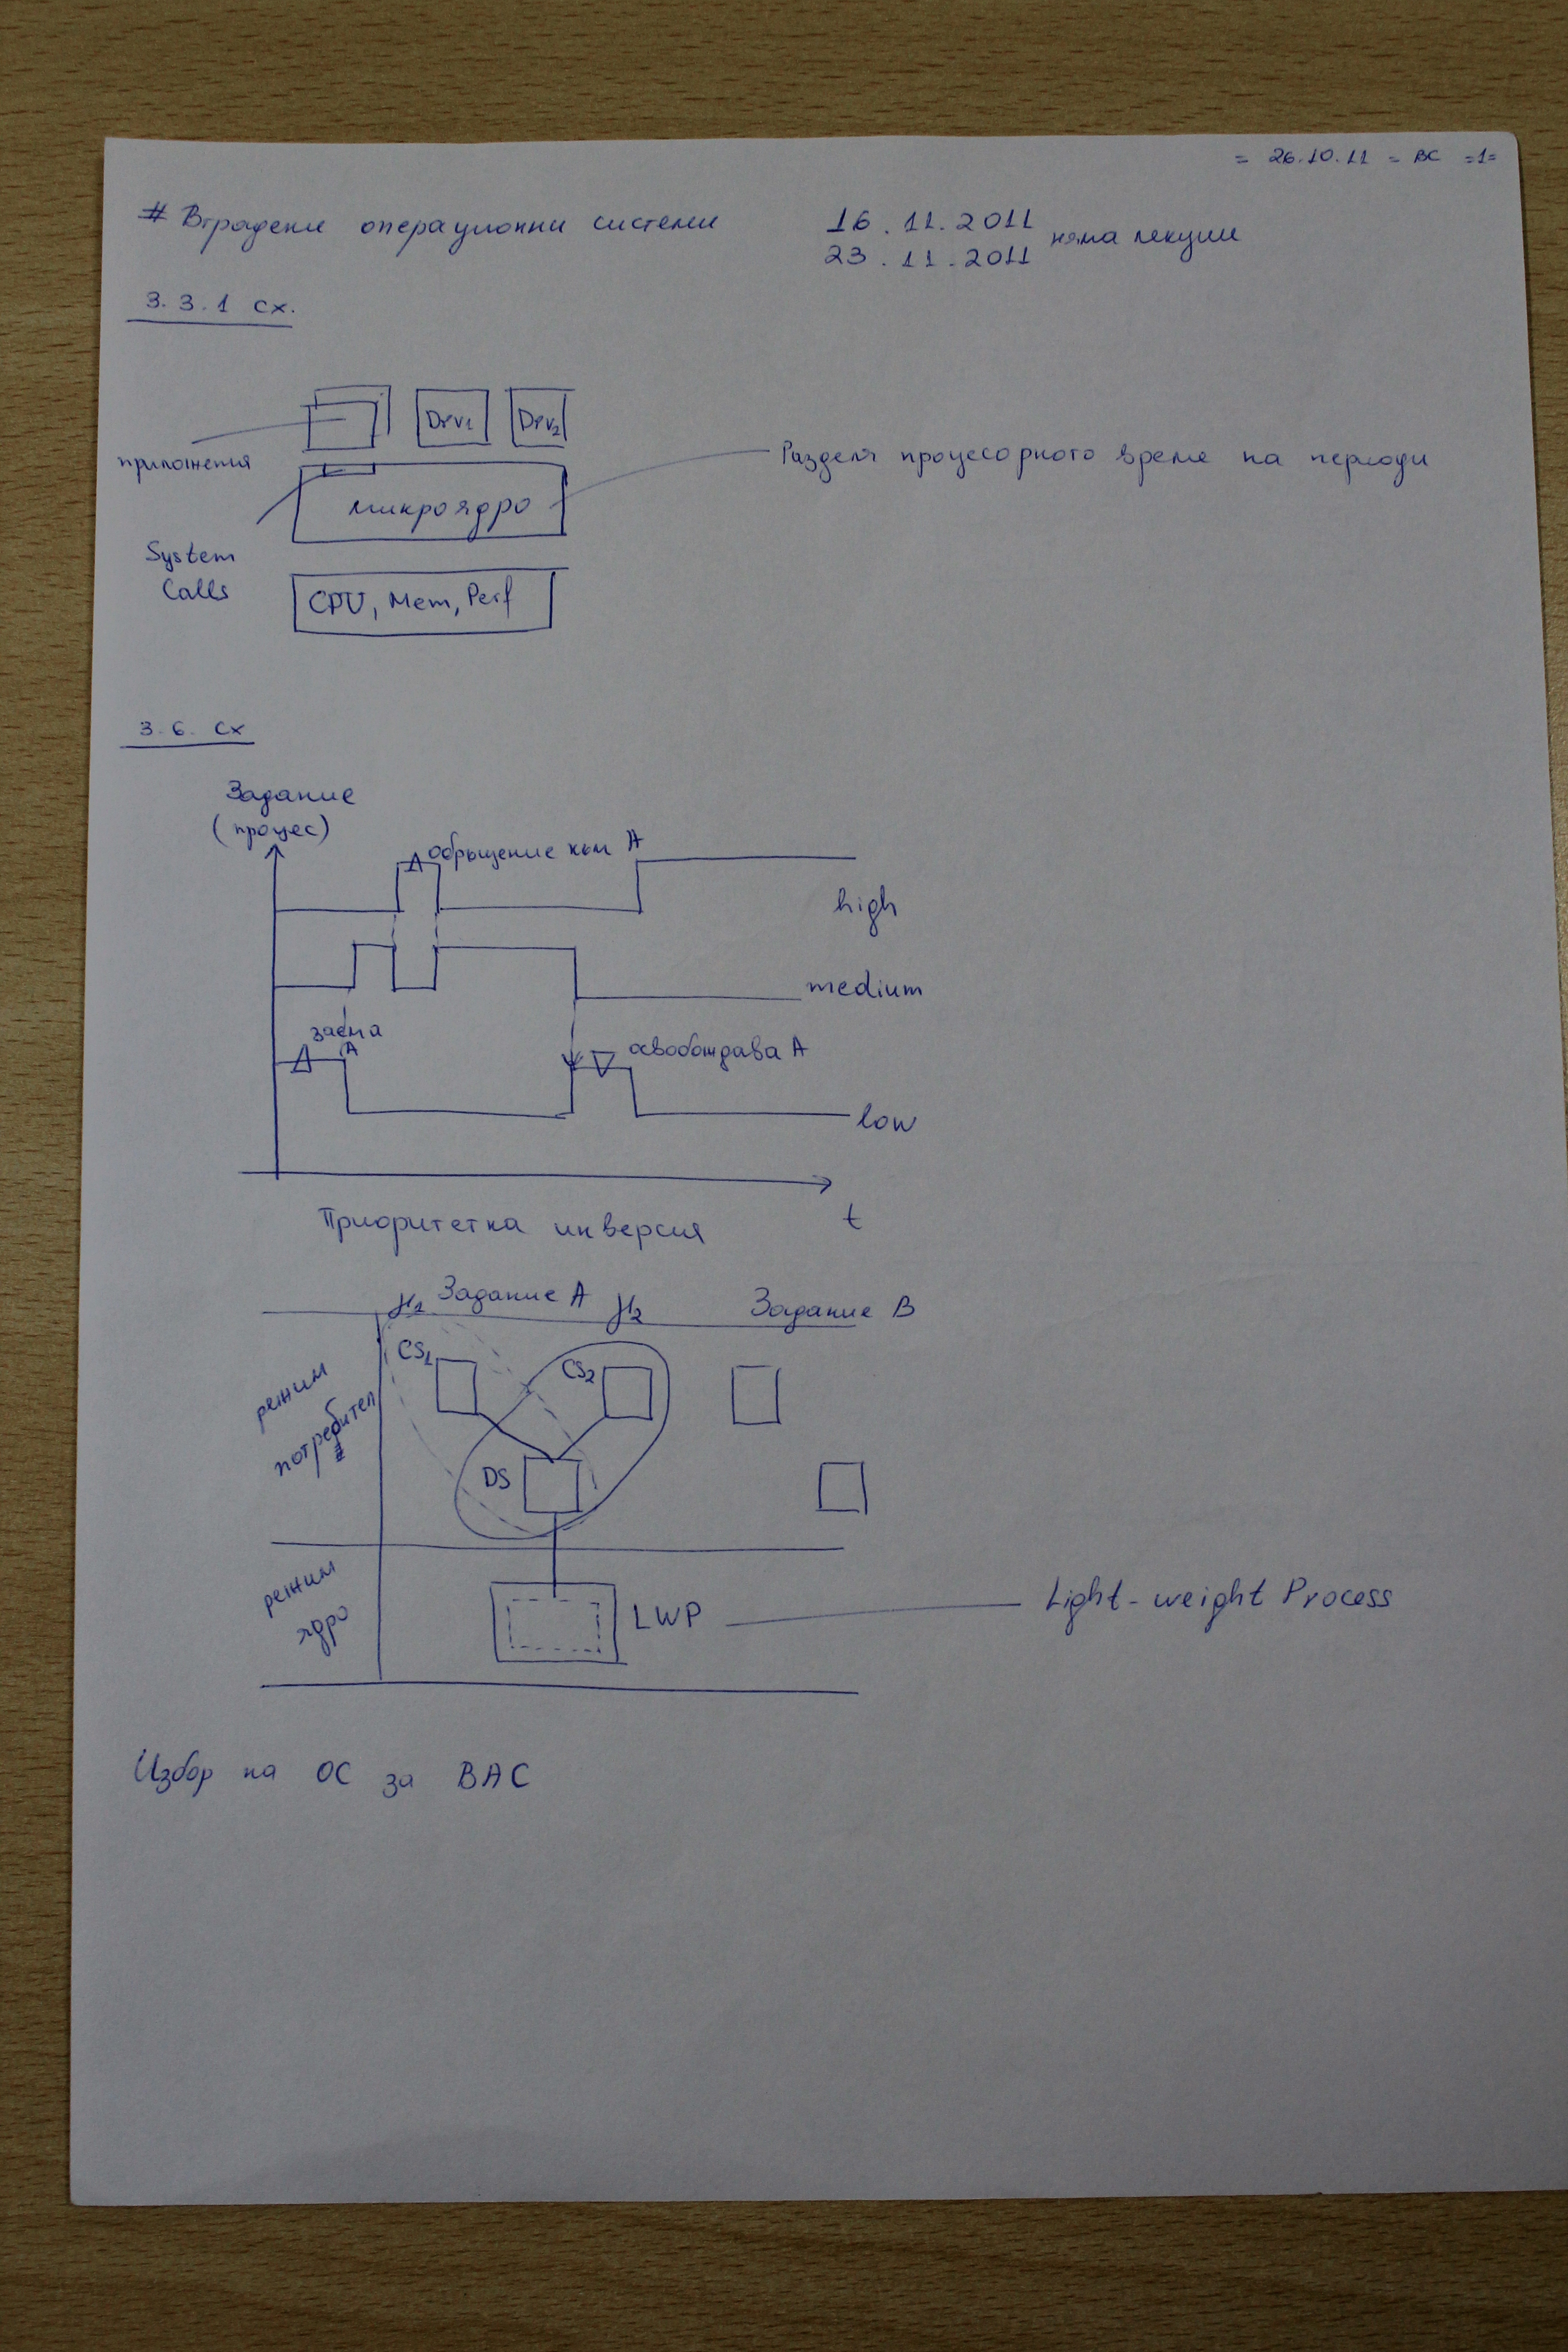 = 26.10.11 = ВС =1=
# Вградени операционни системи
16.11.2011
23.11.2011
няма лекции
3.3.1 сх.
Drv1
Drv2
приложения
Разделя процесорното време на периоди
микроядро
System
Calls
CPU, Mem, Perf
3.6. сх
Задание
(процес)
обръщение към А
high
medium
заема
А
освобождава А
low
t
Приоритетна инверсия
Задание А
Задание В
CS1
CS2
режим
потребител
DS
режим
ядро
LWP
Light-weight Process
Избор на ОС за ВАС